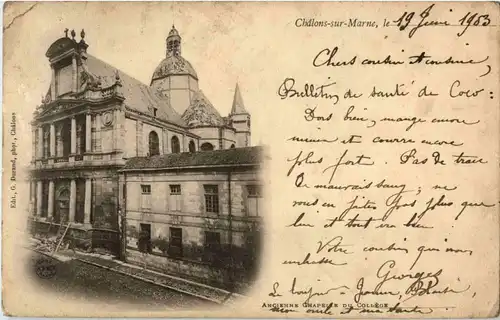 Châlons-sur-Marne, le 19 Juin 1903
Chers cousin et cousine,
Bulletin de santé de Coco :
Dors bien, mange encore
mieux et courre encore
plus fort. Pas de trace
de mauvais sang ; ne
vous en faites pas plus que
lui et tout ira bien.
Votre cousin qui vous
embrasse
Georges
Le bonjour à
mon oncle et ma tante.
Edit. G. Durand, phot., Châlons
ANCIENNE CHAPELLE DU COLLÈGE